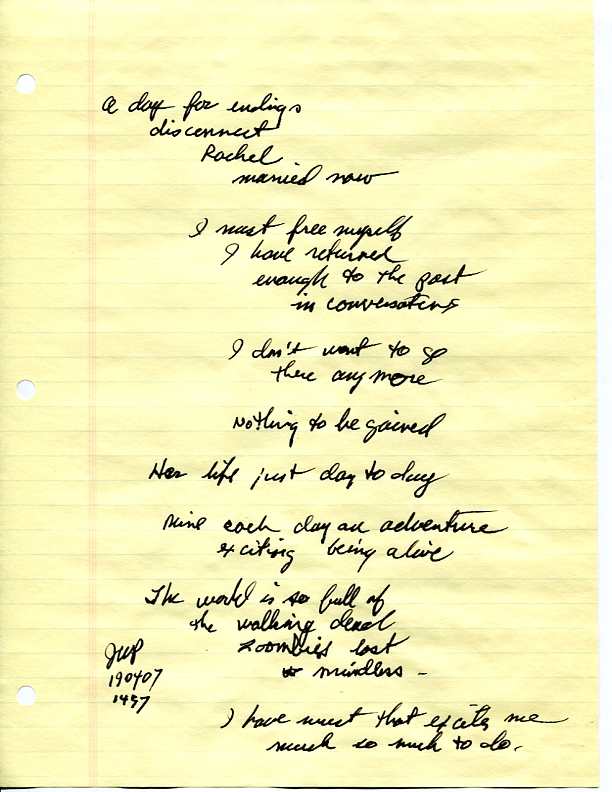 A day for endigs
disconnect
Rachel
married now
I must free myself
I have returned
enough to the past
in conversations
I don't want to go
there any more
Nothing to be gained
Her life just day to day
Mine each day an adventure
exciting being alive
The world is so full of
the walking dead
zoombies lost
mindless -
JWP
190407
1457
I have must that excites me
much so much to do.